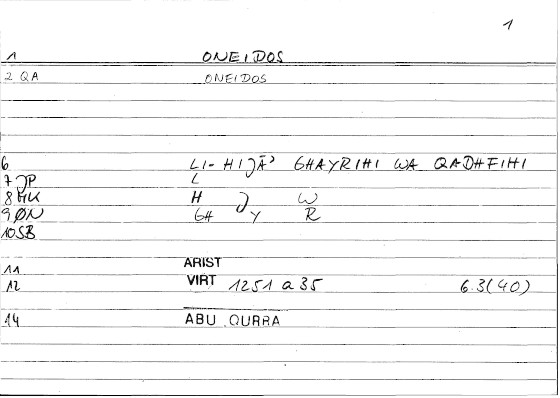 1
1 ONEIDOS
2 QA ONEIDOS
6 LI-HIJĀʾ GHAYRIHI WA QADHFIHI
7 JP L
8 HK H J W
9 ØN GH Y R
10 SB
11 ARIST
12 VIRT 1251 a 35 6.3(40)
14 ABU QURRA